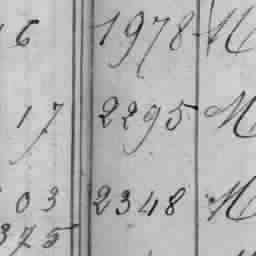 6 1978 M
17 2295 M
03 2348 M
375